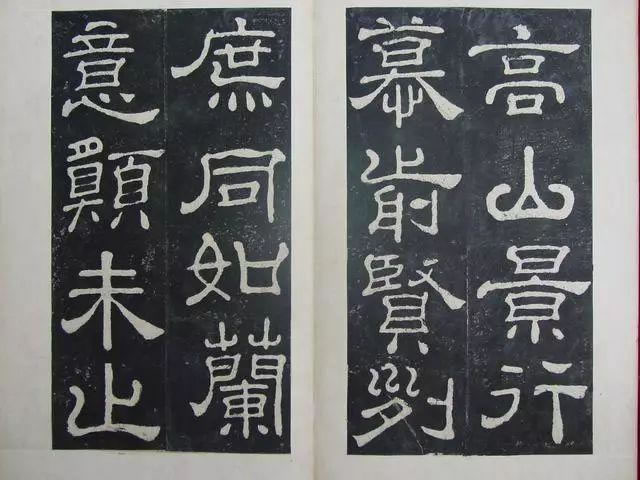 高山景行
慕前賢列
庶同如蘭
意願未止